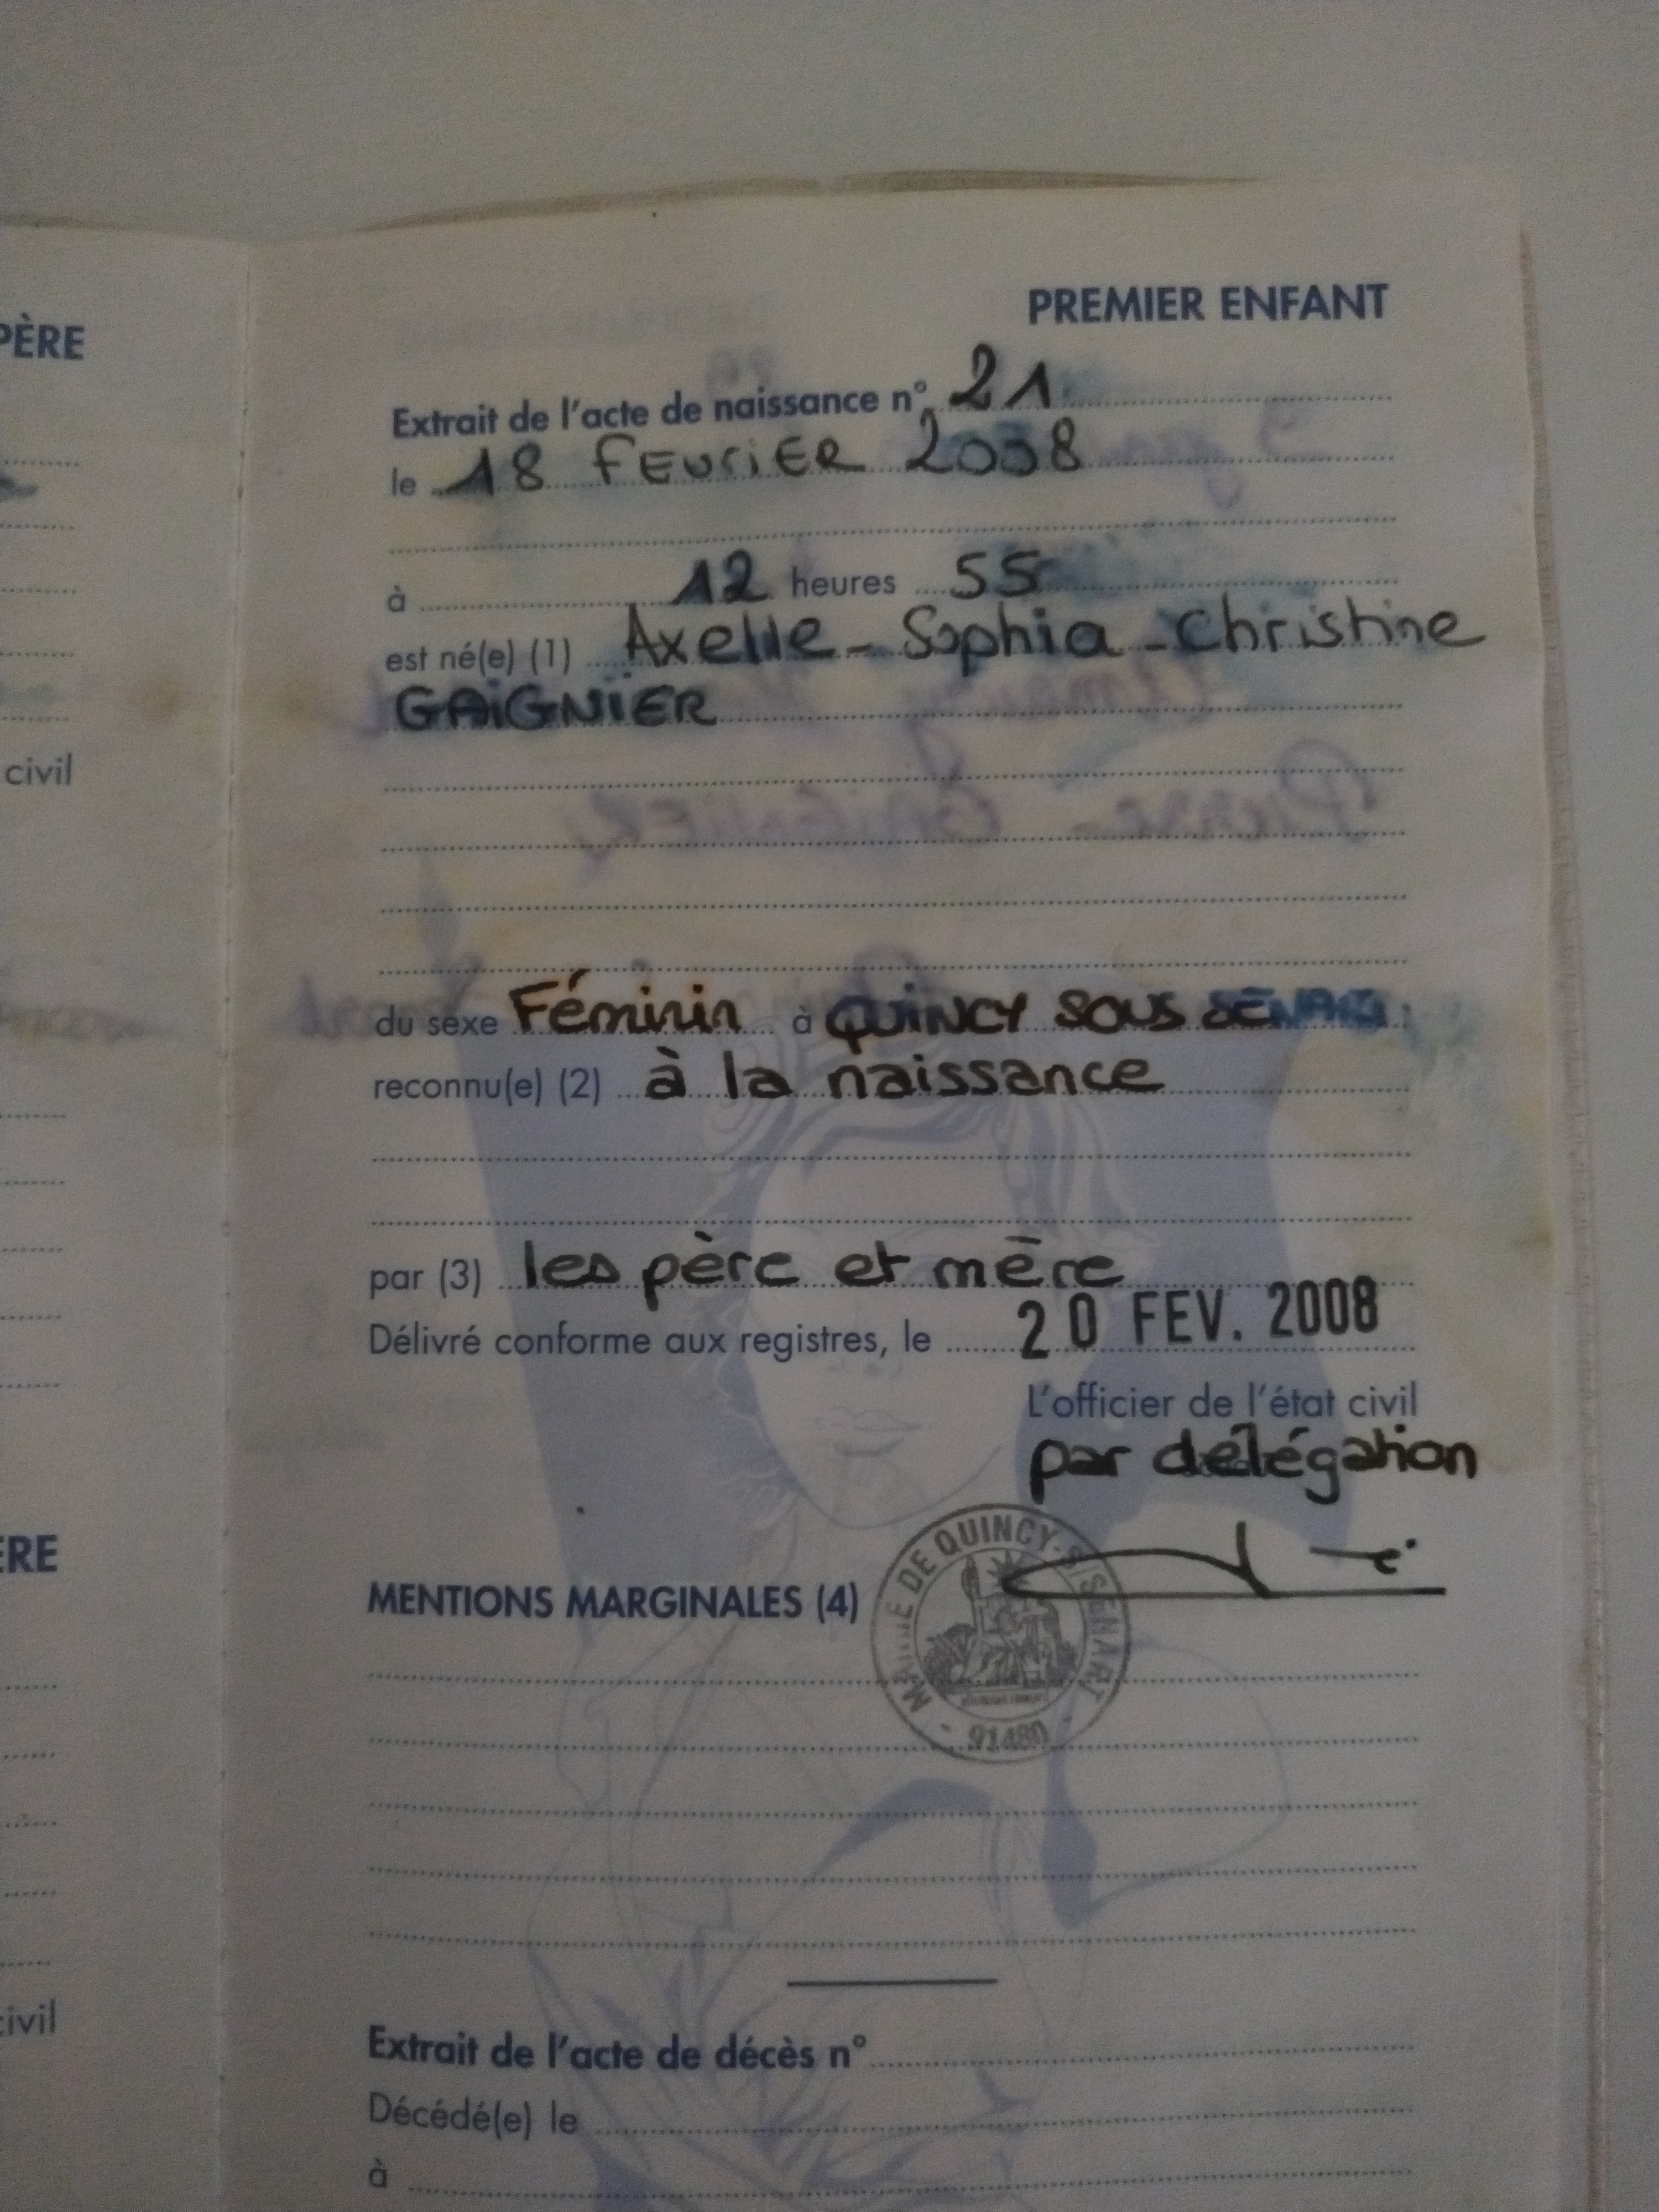 PÈRE
civil
ÈRE
civil
PREMIER ENFANT
Extrait de l'acte de naissance n° 21
le 18 FEVRIER 2008
à 12 heures 55
est né(e) (1) Axelle - Sophia - Christine
GAIGNIER
du sexe Féminin à QUINCY SOUS SENART
reconnu(e) (2) à la naissance
par (3) les père et mère
Délivré conforme aux registres, le 20 FEV. 2008
L'officier de l'état civil
par délégation
MENTIONS MARGINALES (4)
MAIRIE DE QUINCY-S/SENART
91480
Extrait de l'acte de décès n°
Décédé(e) le
à